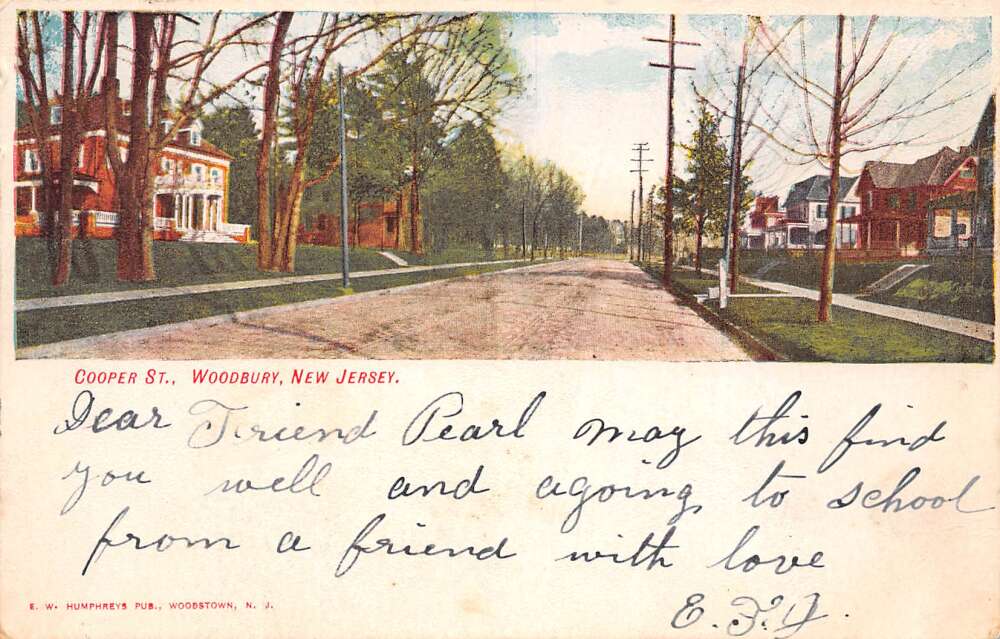 COOPER ST., WOODBURY, NEW JERSEY.
Dear Friend Pearl may this find
you well and agoing to school
from a friend with love
E. F. J.
E. W. HUMPHREYS PUB., WOODSTOWN, N. J.